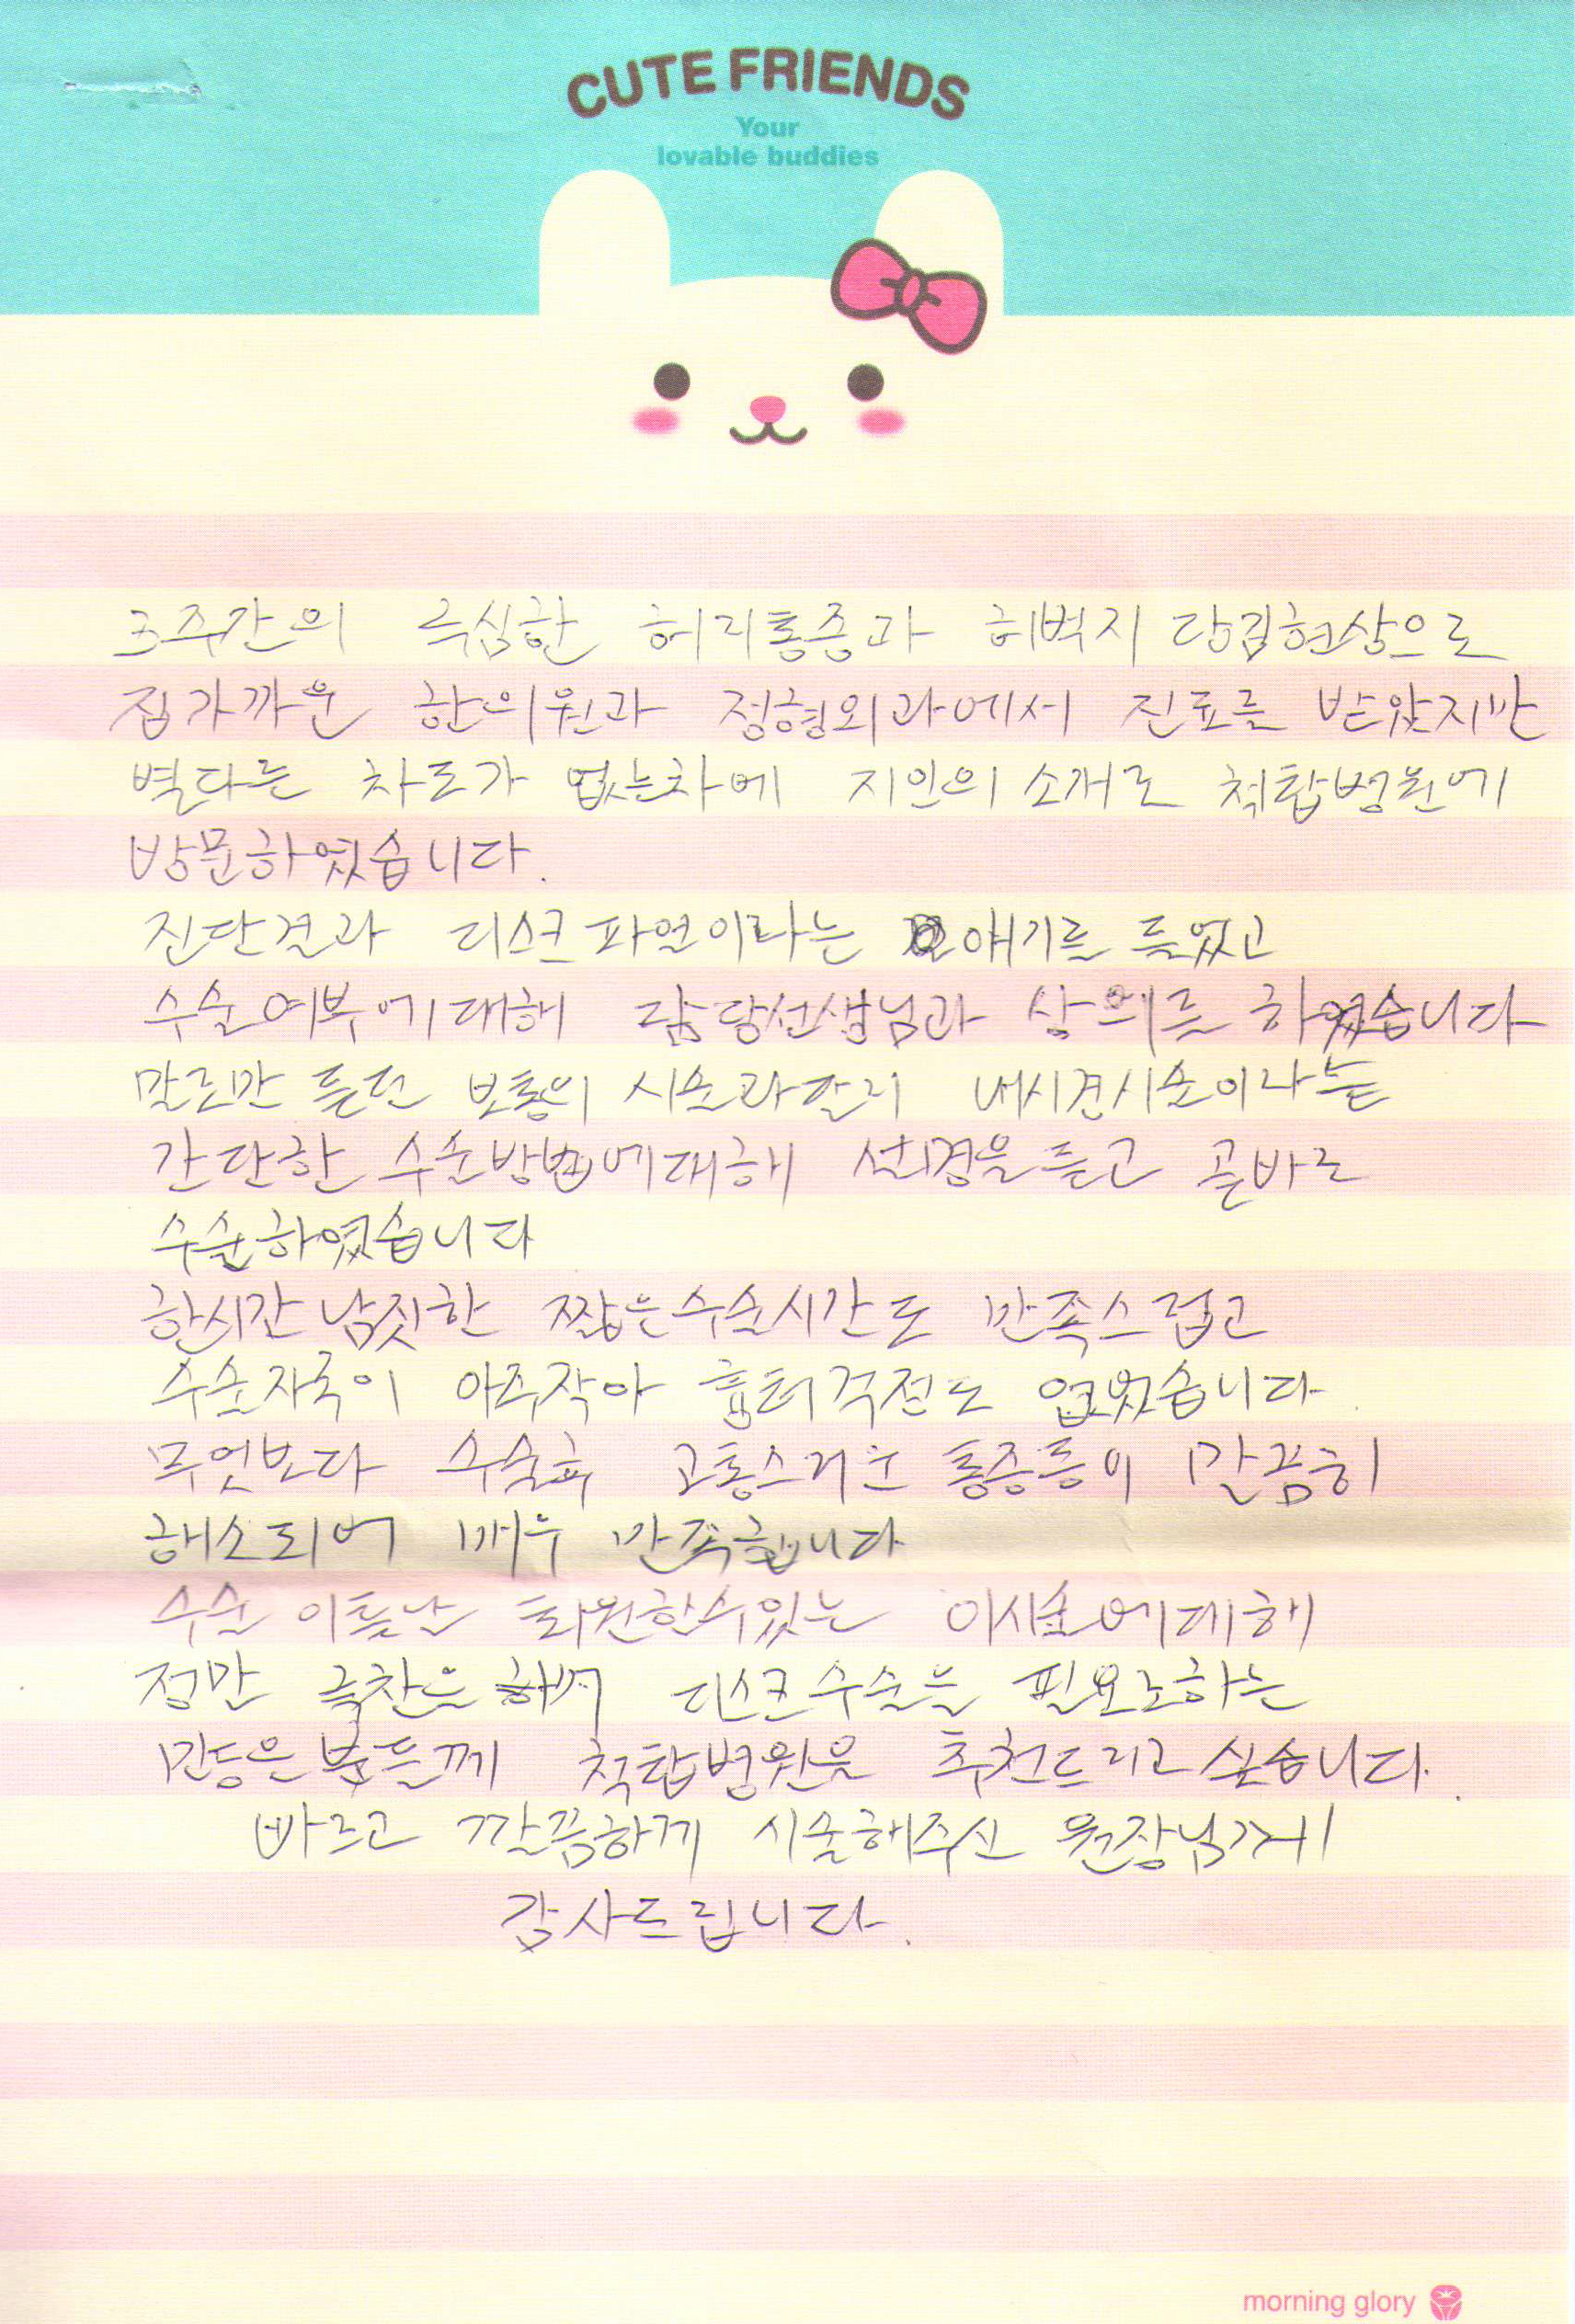 CUTE FRIENDS
Your
lovable buddies
3주간의 극심한 허리통증과 허벅지 당김현상으로
집가까운 한의원과 정형외과에서 진료를 받았지만
별다른 차도가 없는차에 지인의 소개로 척탑병원에
방문하였습니다.
진단결과 디스크 파열이라는 얘기를 들었고
수술여부에대해 담당선생님과 상의를 하였습니다
말로만 듣던 보통의 시술과달리 내시경시술이라는
간단한 수술방법에대해 설명을듣고 곧바로
수술하였습니다
한시간 남짓한 짧은수술시간도 만족스럽고
수술자국이 아주작아 흉터걱정도 없었습니다.
무엇보다 수술후 고통스러운 통증등이 말끔히
해소되어 매우 만족합니다
수술 이튿날 퇴원할수있는 이시술에대해
정말 극찬을 하며 디스크수술을 필요로하는
많은분들께 척탑병원을 추천드리고 싶습니다.
바르고 깔끔하게 시술해주신 원장님께
감사드립니다.
morning glory